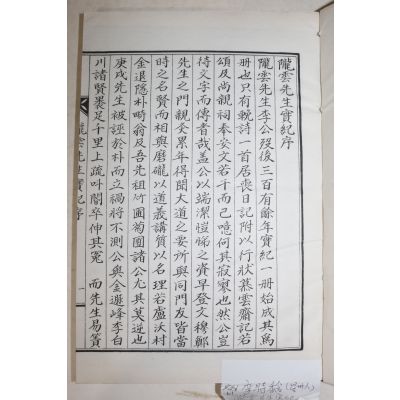 隴雲先生實紀序
隴雲先生李公歿後三百有餘年實紀一冊始成其爲
冊也只有輓詩一首居喪日記附以行狀慕雲齋記若
頌及尚親祠奉安文若干而已噫何其寂寥也然公豈
待文字而傳者哉盖公以端潔愷悌之資早登文穆鄭
先生之門親炙累年得聞大道之要所與同門友皆當
時之名賢而相與磨礲以道義講質以名理若盧沃村
金退隱朴畸翁及吾先祖竹圃菊圃諸公尤其莫逆也
庚戌先生被誣於朴而立禍將不測公與金遯峰李白
川諸賢褁足千里上疏叫閽卒伸其冤 而先生易簀
隴雲先生實紀序
一